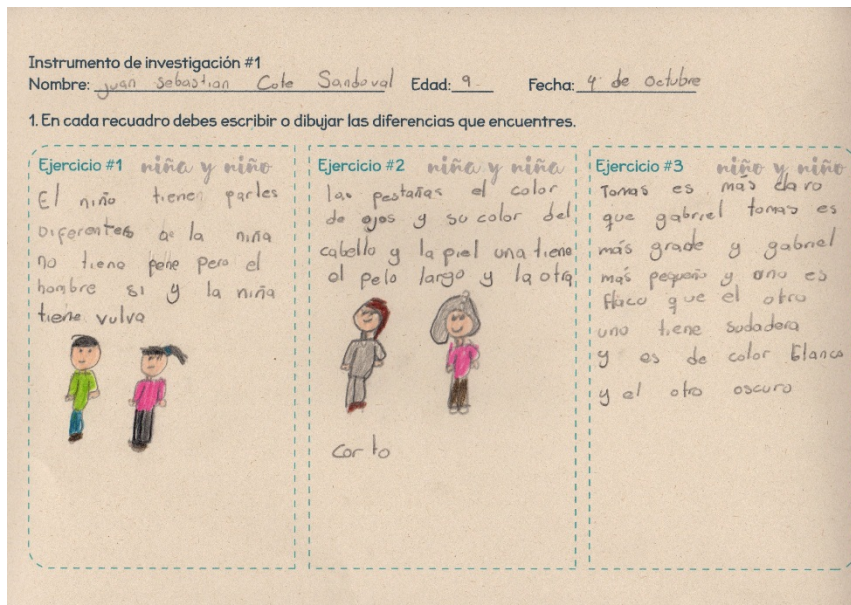 Instrumento de investigación #1
Nombre: Juan Sebastian Cote Sandoval Edad: 9 Fecha: 4 de Octubre
1. En cada recuadro debes escribir o dibujar las diferencias que encuentres.
Ejercicio #1 niña y niño
El niño tiene partes
Diferentes de la niña
no tiene pene pero el
hombre si y la niña
tiene vulva
Ejercicio #2 niña y niña
las pestañas el color
de ojos y su color del
cabello y la piel una tiene
el pelo largo y la otra
corto
Ejercicio #3 niño y niño
Tomas es más claro
que gabriel tomas es
más grade y gabriel
más pequeño y uno es
flaco que el otro
uno tiene sudadera
y es de color blanco
y el otro oscuro